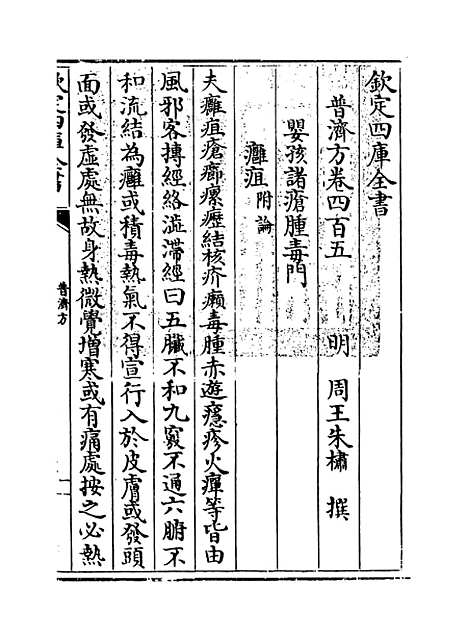 欽定四庫全書
普濟方卷四百五
明 周王朱橚 撰
嬰孩諸瘡腫毒門
癰疽附論
夫癰疽瘡癤瘰癧結核疥癩毒腫赤遊癮疹火癉等皆由
風邪客搏經絡澁滯經曰五臟不和九竅不通六腑不
和流結為癰或積毒熱氣不得宣行入於皮膚或發頭
面或發虛處無故身熱微覺增寒或有痛處按之必熱
欽定四庫全書
普濟方
一